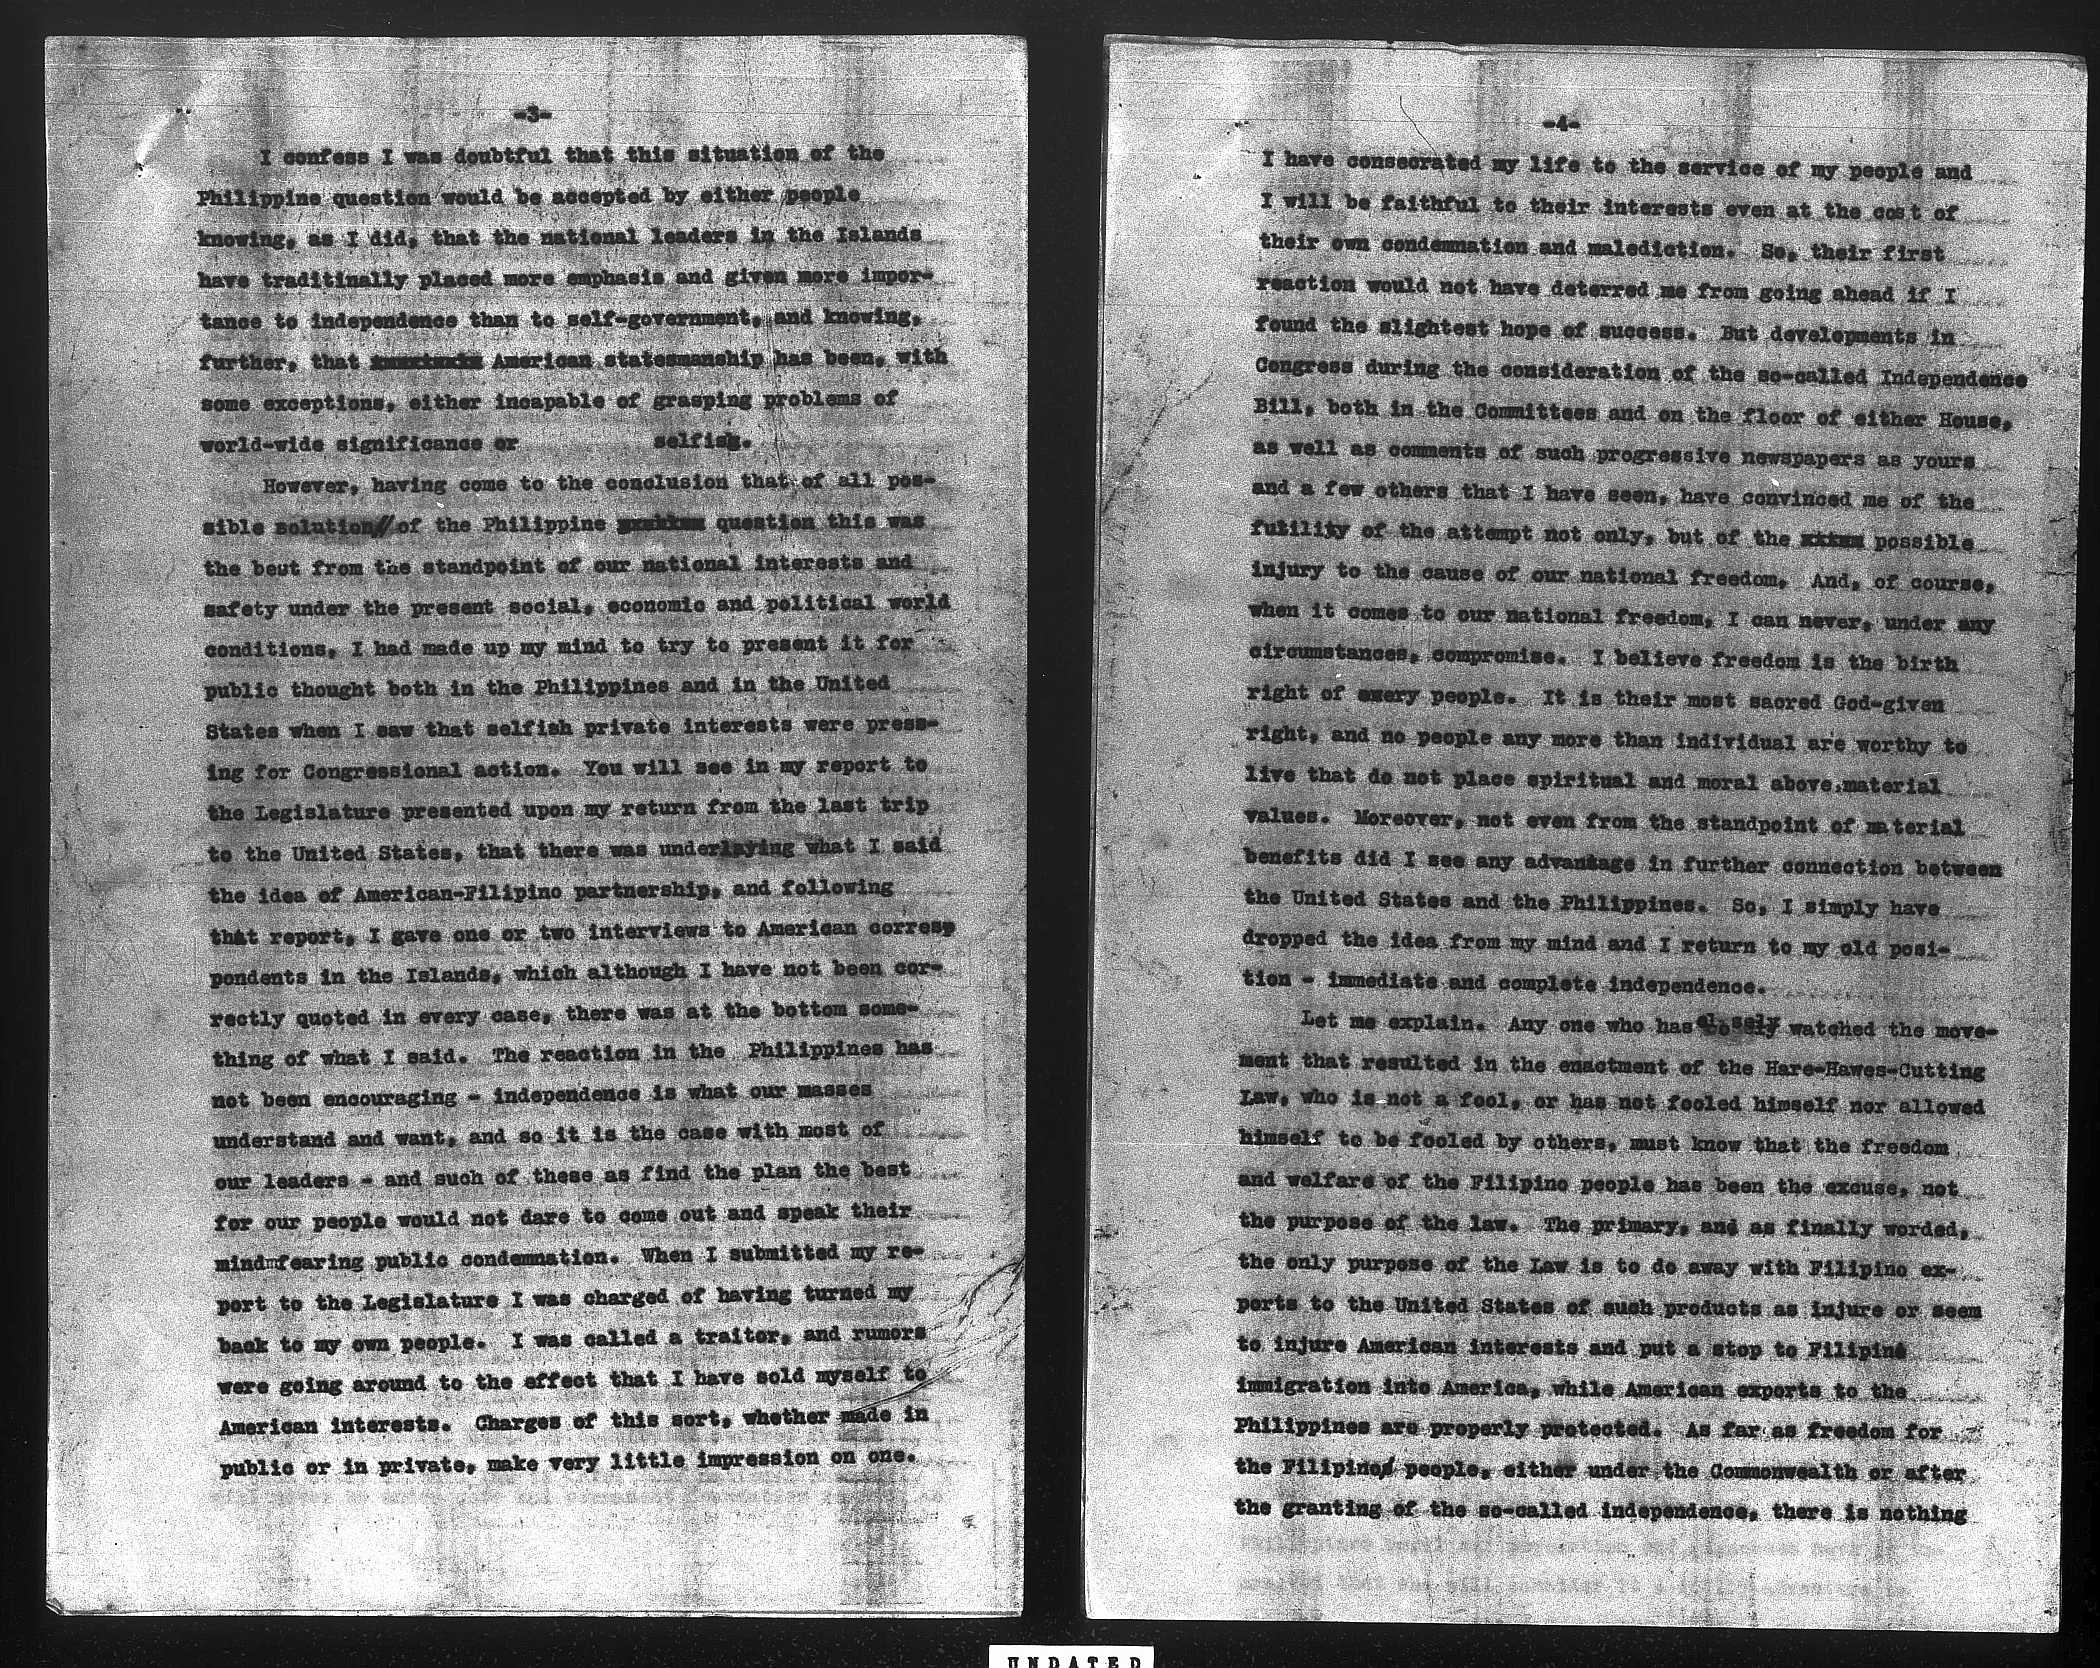 -3-
I confess I was doubtful that this situation of the
Philippine question would be accepted by either people
knowing, as I did, that the national leaders in the Islands
have traditinally placed more emphasis and given more impor-
tance to independence than to self-government, and knowing,
further, that American statesmanship has been, with
some exceptions, either incapable of grasping problems of
world-wide significance or selfish.
However, having come to the conclusion that of all pos-
sible solution of the Philippine question this was
the best from the standpoint of our national interests and
safety under the present social, economic and political world
conditions, I had made up my mind to try to present it for
public thought both in the Philippines and in the United
States when I saw that selfish private interests were press-
ing for Congressional action. You will see in my report to
the Legislature presented upon my return from the last trip
to the United States, that there was underlaying what I said
the idea of American-Filipino partnership, and following
that report, I gave one or two interviews to American corresp
pondents in the Islands, which although I have not been cor-
rectly quoted in every case, there was at the bottom some-
thing of what I said. The reaction in the Philippines has
not been encouraging - independence is what our masses
understand and want, and so it is the case with most of
our leaders - and such of these as find the plan the best
for our people would not dare to come out and speak their
mindmfearing public condemnation. When I submitted my re-
port to the Legislature I was charged of having turned my
back to my own people. I was called a traitor, and rumors
were going around to the effect that I have sold myself to
American interests. Charges of this sort, whether made in
public or in private, make very little impression on one.
-4-
I have consecrated my life to the service of my people and
I will be faithful to their interests even at the cost of
their own condemnation and malediction. So, their first
reaction would not have deterred me from going ahead if I
found the slightest hope of success. But developments in
Congress during the consideration of the so-called Independence
Bill, both in the Committees and on the floor of either House,
as well as comments of such progressive newspapers as yours
and a few others that I have seen, have convinced me of the
futility of the attempt not only, but of the possible
injury to the cause of our national freedom. And, of course,
when it comes to our national freedom, I can never, under any
circumstances, compromise. I believe freedom is the birth
right of every people. It is their most sacred God-given
right, and no people any more than individual are worthy to
live that do not place spiritual and moral above material
values. Moreover, not even from the standpoint of material
benefits did I see any advantage in further connection between
the United States and the Philippines. So, I simply have
dropped the idea from my mind and I return to my old posi-
tion - immediate and complete independence.
Let me explain. Any one who has closely watched the move-
ment that resulted in the enactment of the Hare-Hawes-Cutting
Law, who is not a fool, or has not fooled himself nor allowed
himself to be fooled by others, must know that the freedom
and welfare of the Filipino people has been the excuse, not
the purpose of the law. The primary, and as finally worded,
the only purpose of the Law is to do away with Filipino ex-
ports to the United States of such products as injure or seem
to injure American interests and put a stop to Filipino
immigration into America, while American exports to the
Philippines are properly protected. As far as freedom for
the Filipino people, either under the Commonwealth or after
the granting of the so-called independence, there is nothing
UNDATED